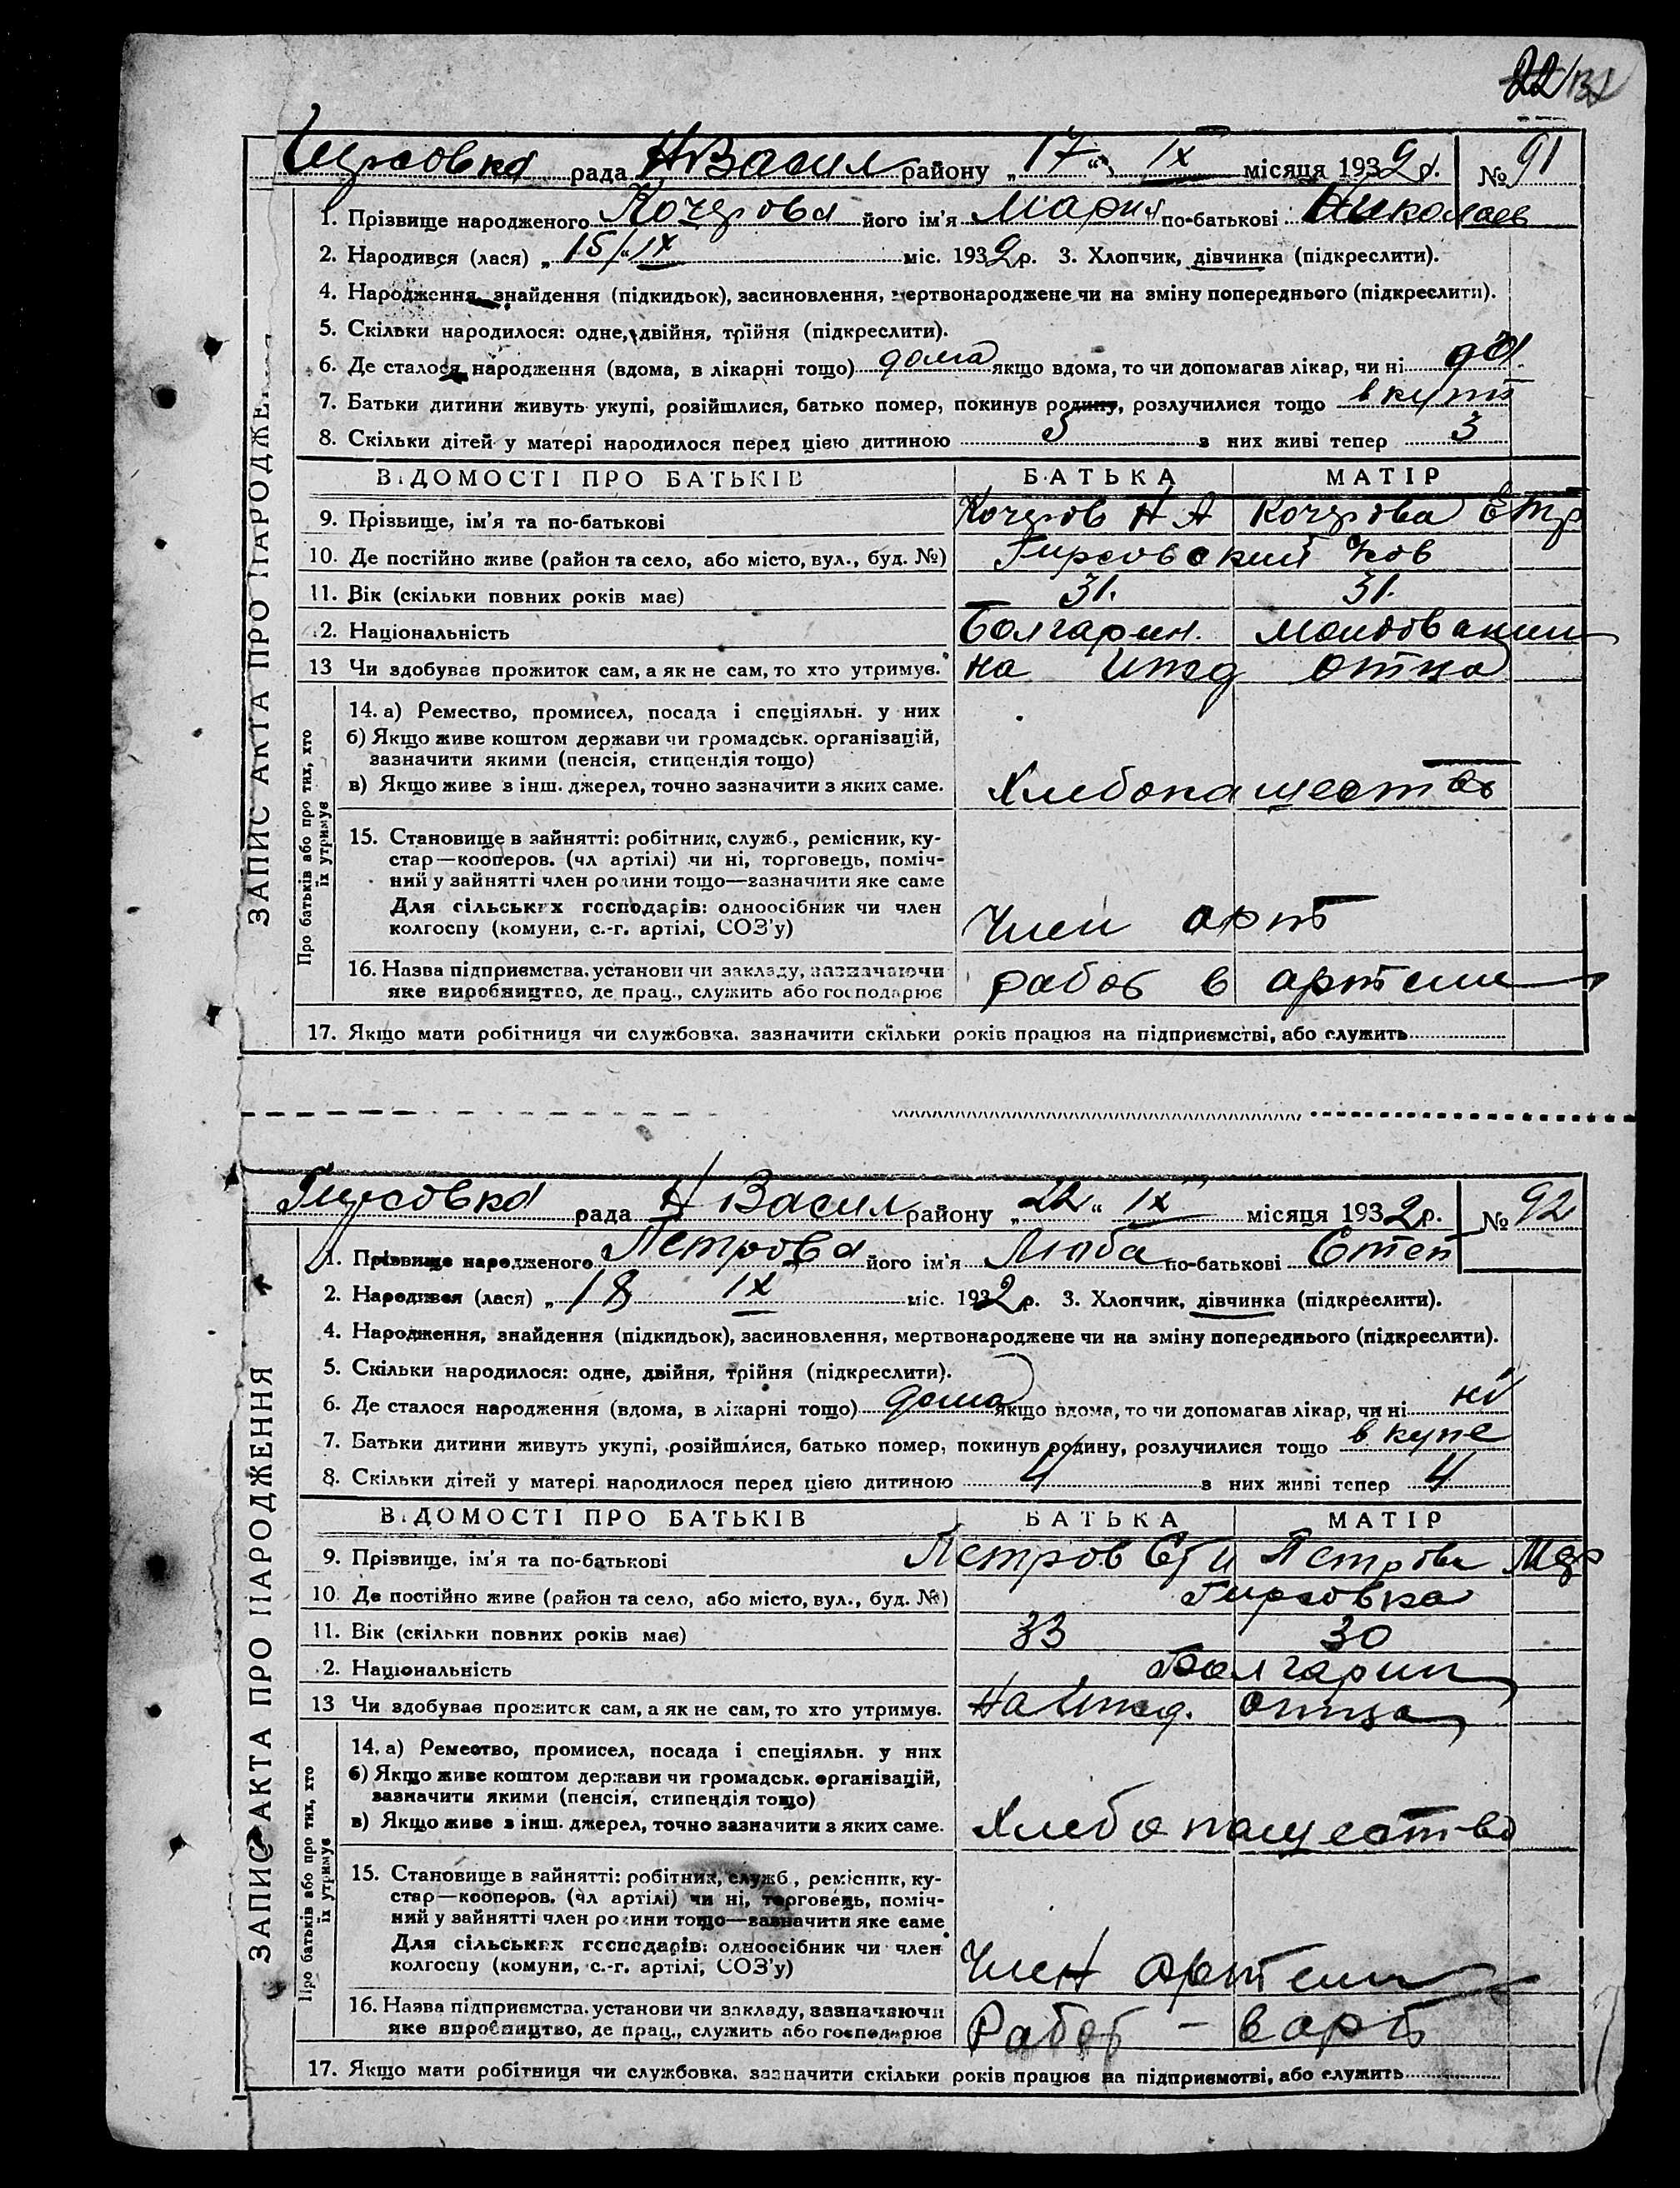 22
Гирсовка рада Н Васил району „17“ IX місяця 1932 р. № 91
1. Прізвище народженого Кочерова його ім'я Мария по-батькові Николаев
2. Народився (лася) „15“ IX міс. 1932 р. 3. Хлопчик, дівчинка (підкреслити).
4. Народження, знайдення (підкидьок), засиновлення, мертвонароджене чи на зміну попереднього (підкреслити).
5. Скільки народилося: одне, двійня, трійня (підкреслити).
6. Де сталося народження (вдома, в лікарні тощо) дома якщо вдома, то чи допомагав лікар, чи ні
7. Батьки дитини живуть укупі, розійшлися, батько помер, покинув родину, розлучилися тощо
8. Скільки дітей у матері народилося перед цією дитиною 5 з них живі тепер 3
ВІДОМОСТІ ПРО БАТЬКІВ БАТЬКА МАТІР
9. Прізвище, ім'я та по-батькові Кочеров Н А Кочерова Е
10. Де постійно живе (район та село, або місто, вул., буд. №) Гирсовский
11. Вік (скільки повних років має) 31. 31.
2. Національність Болгарин. Молдован
13 Чи здобував прожиток сам, а як не сам, то хто утримує. на ижд отца
14. а) Ремество, промисел, посада і спеціяльн. у них
б) Якщо живе коштом держави чи громадськ. організацій,
зазначити якими (пенсія, стипендія тощо)
в) Якщо живе з інш. джерел, точно зазначити з яких саме. Хлебопашество
15. Становище в зайнятті: робітник, служб., ремісник, ку-
стар—кооперов. (чл артілі) чи ні, торговець, поміч-
ний у зайнятті член родини тощо—зазначити яке саме
Для сільських господарів: одноосібник чи член
колгоспу (комуни, с.-г. артілі, СОЗ'у) Член арт
16. Назва підприємства, установи чи закладу, зазначаючи
яке виробництво, де прац., служить або господарює работ в артели
17. Якщо мати робітниця чи службовка, зазначити скільки років працює на підприємстві, або служить
ЗАПИС АКТА ПРО НАРОДЖЕ
Про батьків або про тих, хто
їх утримує
Гирсовка рада Н Васил району „22“ IX місяця 1932 р. № 92
1. Прізвище народженого Петрова його ім'я Люба по-батькові Степ
2. Народився (лася) „18 IX міс. 1932 р. 3. Хлопчик, дівчинка (підкреслити).
4. Народження, знайдення (підкидьок), засиновлення, мертвонароджене чи на зміну попереднього (підкреслити).
5. Скільки народилося: одне, двійня, трійня (підкреслити).
6. Де сталося народження (вдома, в лікарні тощо) дома якщо вдома, то чи допомагав лікар, чи ні ні
7. Батьки дитини живуть укупі, розійшлися, батько помер, покинув родину, розлучилися тощо вкупе
8. Скільки дітей у матері народилося перед цією дитиною 4 з них живі тепер 4
ВІДОМОСТІ ПРО БАТЬКІВ БАТЬКА МАТІР
9. Прізвище, ім'я та по-батькові Петров Ст И Петрова
10. Де постійно живе (район та село, або місто, вул., буд. №) Гирсовка
11. Вік (скільки повних років має) 33 30
2. Національність Болгарин
13 Чи здобував прожиток сам, а як не сам, то хто утримує. На ижд. отца
14. а) Ремество, промисел, посада і спеціяльн. у них
б) Якщо живе коштом держави чи громадськ. організацій,
зазначити якими (пенсія, стипендія тощо)
в) Якщо живе з інш. джерел, точно зазначити з яких саме. Хлебопашество
15. Становище в зайнятті: робітник, служб., ремісник, ку-
стар—кооперов. (чл артілі) чи ні, торговець, поміч-
ний у зайнятті член родини тощо—зазначити яке саме
Для сільських господарів: одноосібник чи член
колгоспу (комуни, с.-г. артілі, СОЗ'у) Член артели
16. Назва підприємства, установи чи закладу, зазначаючи
яке виробництво, де прац., служить або господарює Работ - в арт
17. Якщо мати робітниця чи службовка, зазначити скільки років працює на підприємстві, або служить
ЗАПИС АКТА ПРО НАРОДЖЕННЯ
Про батьків або про тих, хто
їх утримує